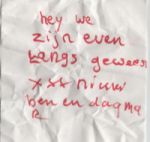 hey we
zijn even
langs geweest
xxx nieuw
ben en dagma
R